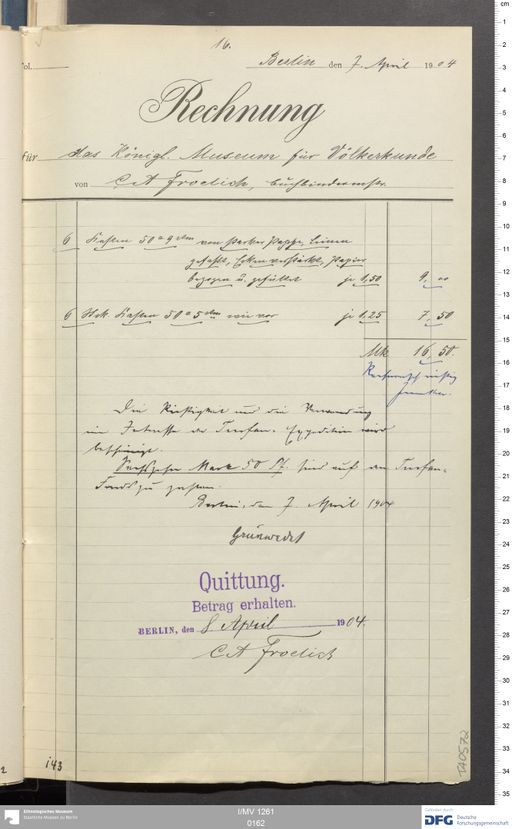 16.
Fol.
Berlin den 7. April 1904
Rechnung
für das Königl. Museum für Völkerkunde
von C A Froelich, Buchbindermstr.
6 Kasten 50 a 9 ctm von starker Pappe, Leinen
gefasst, Ecken verstärkt, Papier
bezogen u. gefüttert je 1,50 9, 00
6 Stck Kasten 50 a 5 ctm wie vor je 1,25 7, 50
Mk 16, 50.
Die Richtigkeit und die Verwendung
im Interesse der Turfan-Expedition wird
bescheinigt.
Sechszehn Mark 50 Pf. sind auf den Turfan-
Fonds zu zahlen.
Berlin, den 7. April 1904
Grünwedel
Quittung.
Betrag erhalten.
BERLIN, den 8 April 1904.
C A Froelich
143
TA0572
Ethnologisches Museum
Staatliche Museen zu Berlin
I/MV 1261
0162
Gefördert durch
DFG Deutsche
Forschungsgemeinschaft